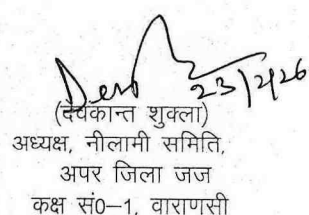 23/2/26
(देवकान्त शुक्ला)
अध्यक्ष, नीलामी समिति,
अपर जिला जज
कक्ष सं0–1, वाराणसी